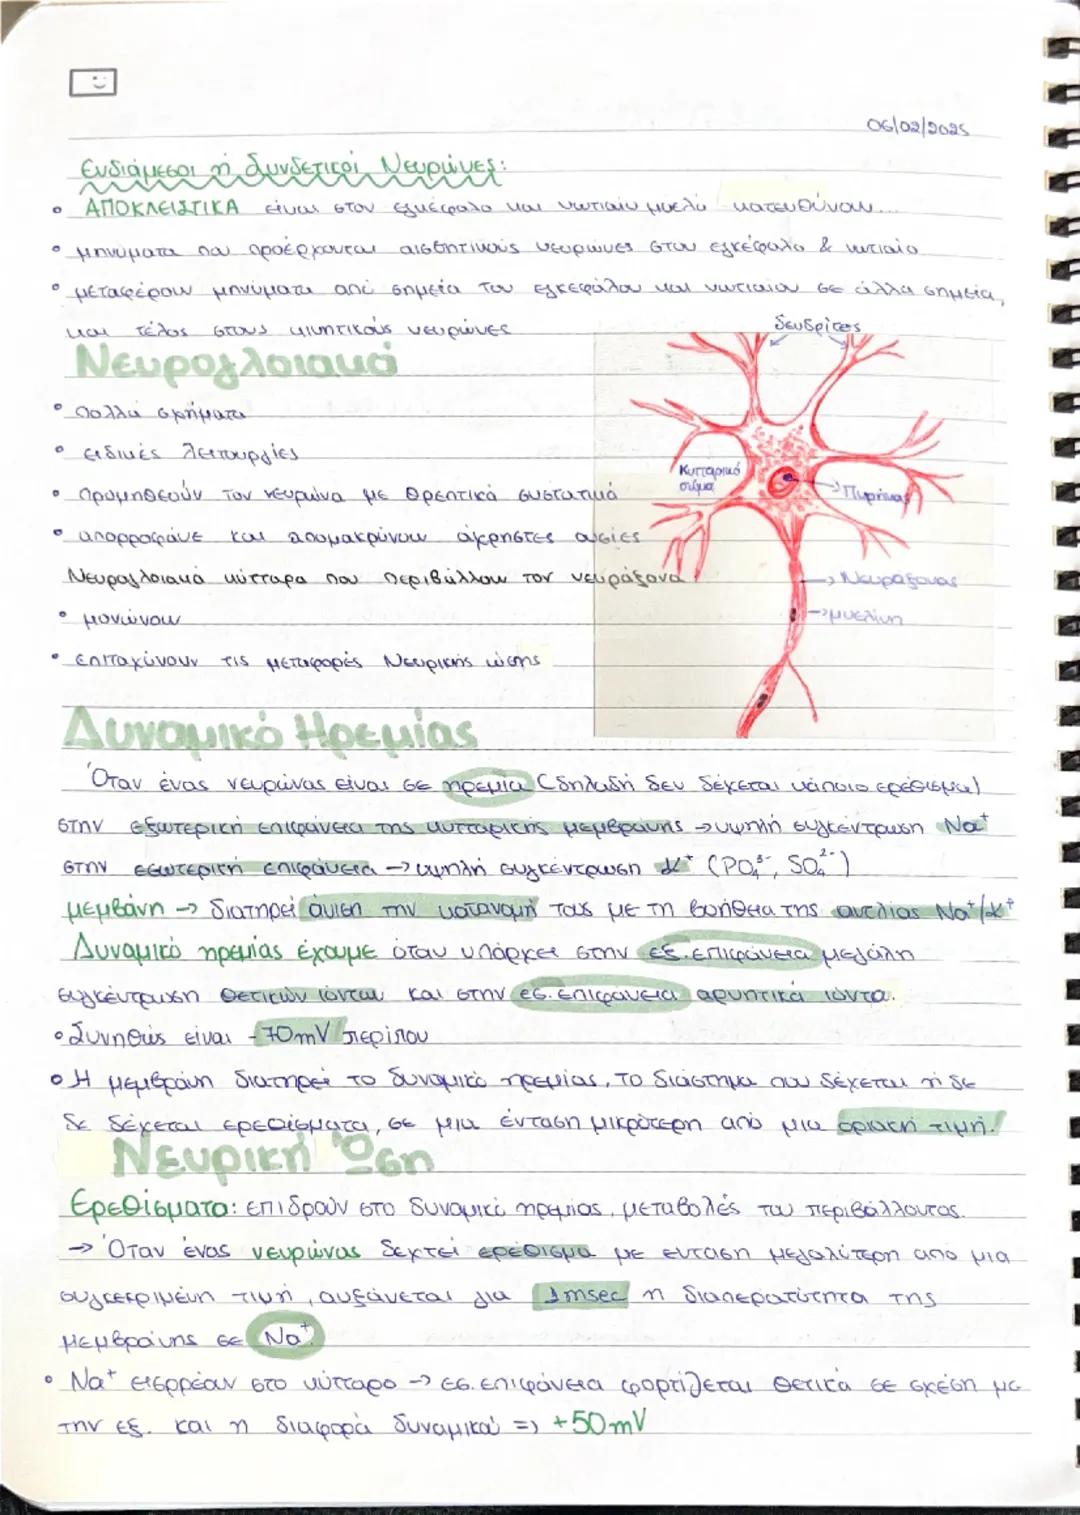 06/02/2025
Ενδιάμεσοι ή Συνδετικοί Νευρώνες:
• ΑΠΟΚΛΕΙΣΤΙΚΑ είναι στον εγκέφαλο και νωτιαίο μυελό κατευθύνουν...
• μηνύματα που προέρχονται αισθητικούς νευρώνες στον εγκέφαλο & νωτιαίο
• μεταφέρουν μηνύματα από σημεία του εγκεφάλου και νωτιαίου σε άλλα σημεία,
και τέλος στους κινητικούς νευρώνες
δενδρίτες
Νευρογλοιακά
• Πολλά σχήματα
• ειδικές λειτουργίες
Κυτταρικό
σώμα
Πυρήνας
• Προμηθεούν τον νευρώνα με θρεπτικά συστατικά
• απορροφάνε και απομακρύνουν άχρηστες ουσίες
Νευρογλοιακά κύτταρα που περιβάλλουν τον νευράξονα
→ Νευράξονας
• μονώνουν
→ μυελίνη
• επιταχύνουν τις μεταφορές Νευρικής ώσης
Δυναμικό Ηρεμίας
Όταν ένας νευρώνας είναι σε ηρεμία (δηλαδή δεν δέχεται κάποιο ερέθισμα)
στην εξωτερική επιφάνεια της κυτταρικής μεμβράνης → υψηλή συγκέντρωση Na⁺
στην εσωτερική επιφάνεια → υψηλή συγκέντρωση K⁺ (PO₄³⁻, SO₄²⁻)
μεμβάνη → διατηρεί άνιση την κατανομή τους με τη βοήθεια της αντλίας Na⁺/K⁺
Δυναμικό ηρεμίας έχουμε όταν υπάρχει στην εξ. επιφάνεια μεγάλη
συγκέντρωση θετικών ιόντων και στην εσ. επιφάνεια αρνητικά ιόντα.
• Συνήθως είναι -70mV περίπου
• Η μεμβράνη διατηρεί το δυναμικό ηρεμίας, το διάστημα που δέχεται ή δε
δε δέχεται ερεθίσματα, σε μια ένταση μικρότερη από μια οριακή τιμή!
Νευρική Ώση
Ερεθίσματα: επιδρούν στο δυναμικό ηρεμίας, μεταβολές του περιβάλλοντος.
→ Όταν ένας νευρώνας δεχτεί ερέθισμα με ένταση μεγαλύτερη από μια
συγκεκριμένη τιμή, αυξάνεται για 1msec η διαπερατότητα της
μεμβράνης σε Na⁺.
• Na⁺ εισρρέουν στο κύτταρο → εσ. επιφάνεια φορτίζεται θετικά σε σχέση με
την εξ. και η διαφορά δυναμικού => +50mV